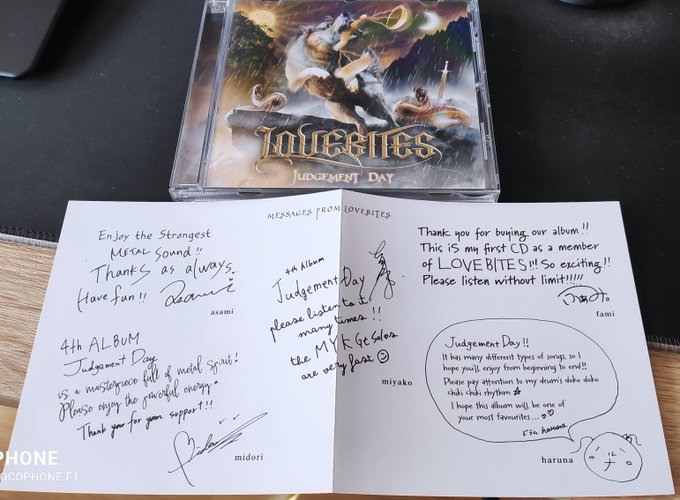 LOVEBITES
JUDGEMENT DAY
MESSAGES FROM LOVEBITES
Enjoy the Strongest
METAL Sound!!
Thanks as always.
Have fun!!
asami
4th ALBUM
Judgement Day
is a masterpiece full of metal spirit!
Please enjoy the powerful energy.
Thank you for your support!!
midori
4th Album
Judgement Day
please listen to it
many times!!
the MYK Gt Solos
are very fast
miyako
Thank you for buying our album!!
This is my first CD as a member
of LOVEBITES!!! So exciting!!
Please listen without limit!!!!!
ふぁみ。
fami
Judgement Day!!
It has many different types of songs, so I
hope you'll enjoy from beginning to end!!
Please pay attention to my drum's doko doko
chiki chiki rhythm ☆
I hope this album will be one of
your most favourites...♡♡
haruna
haruna
PHONE
OCOPHONE F1